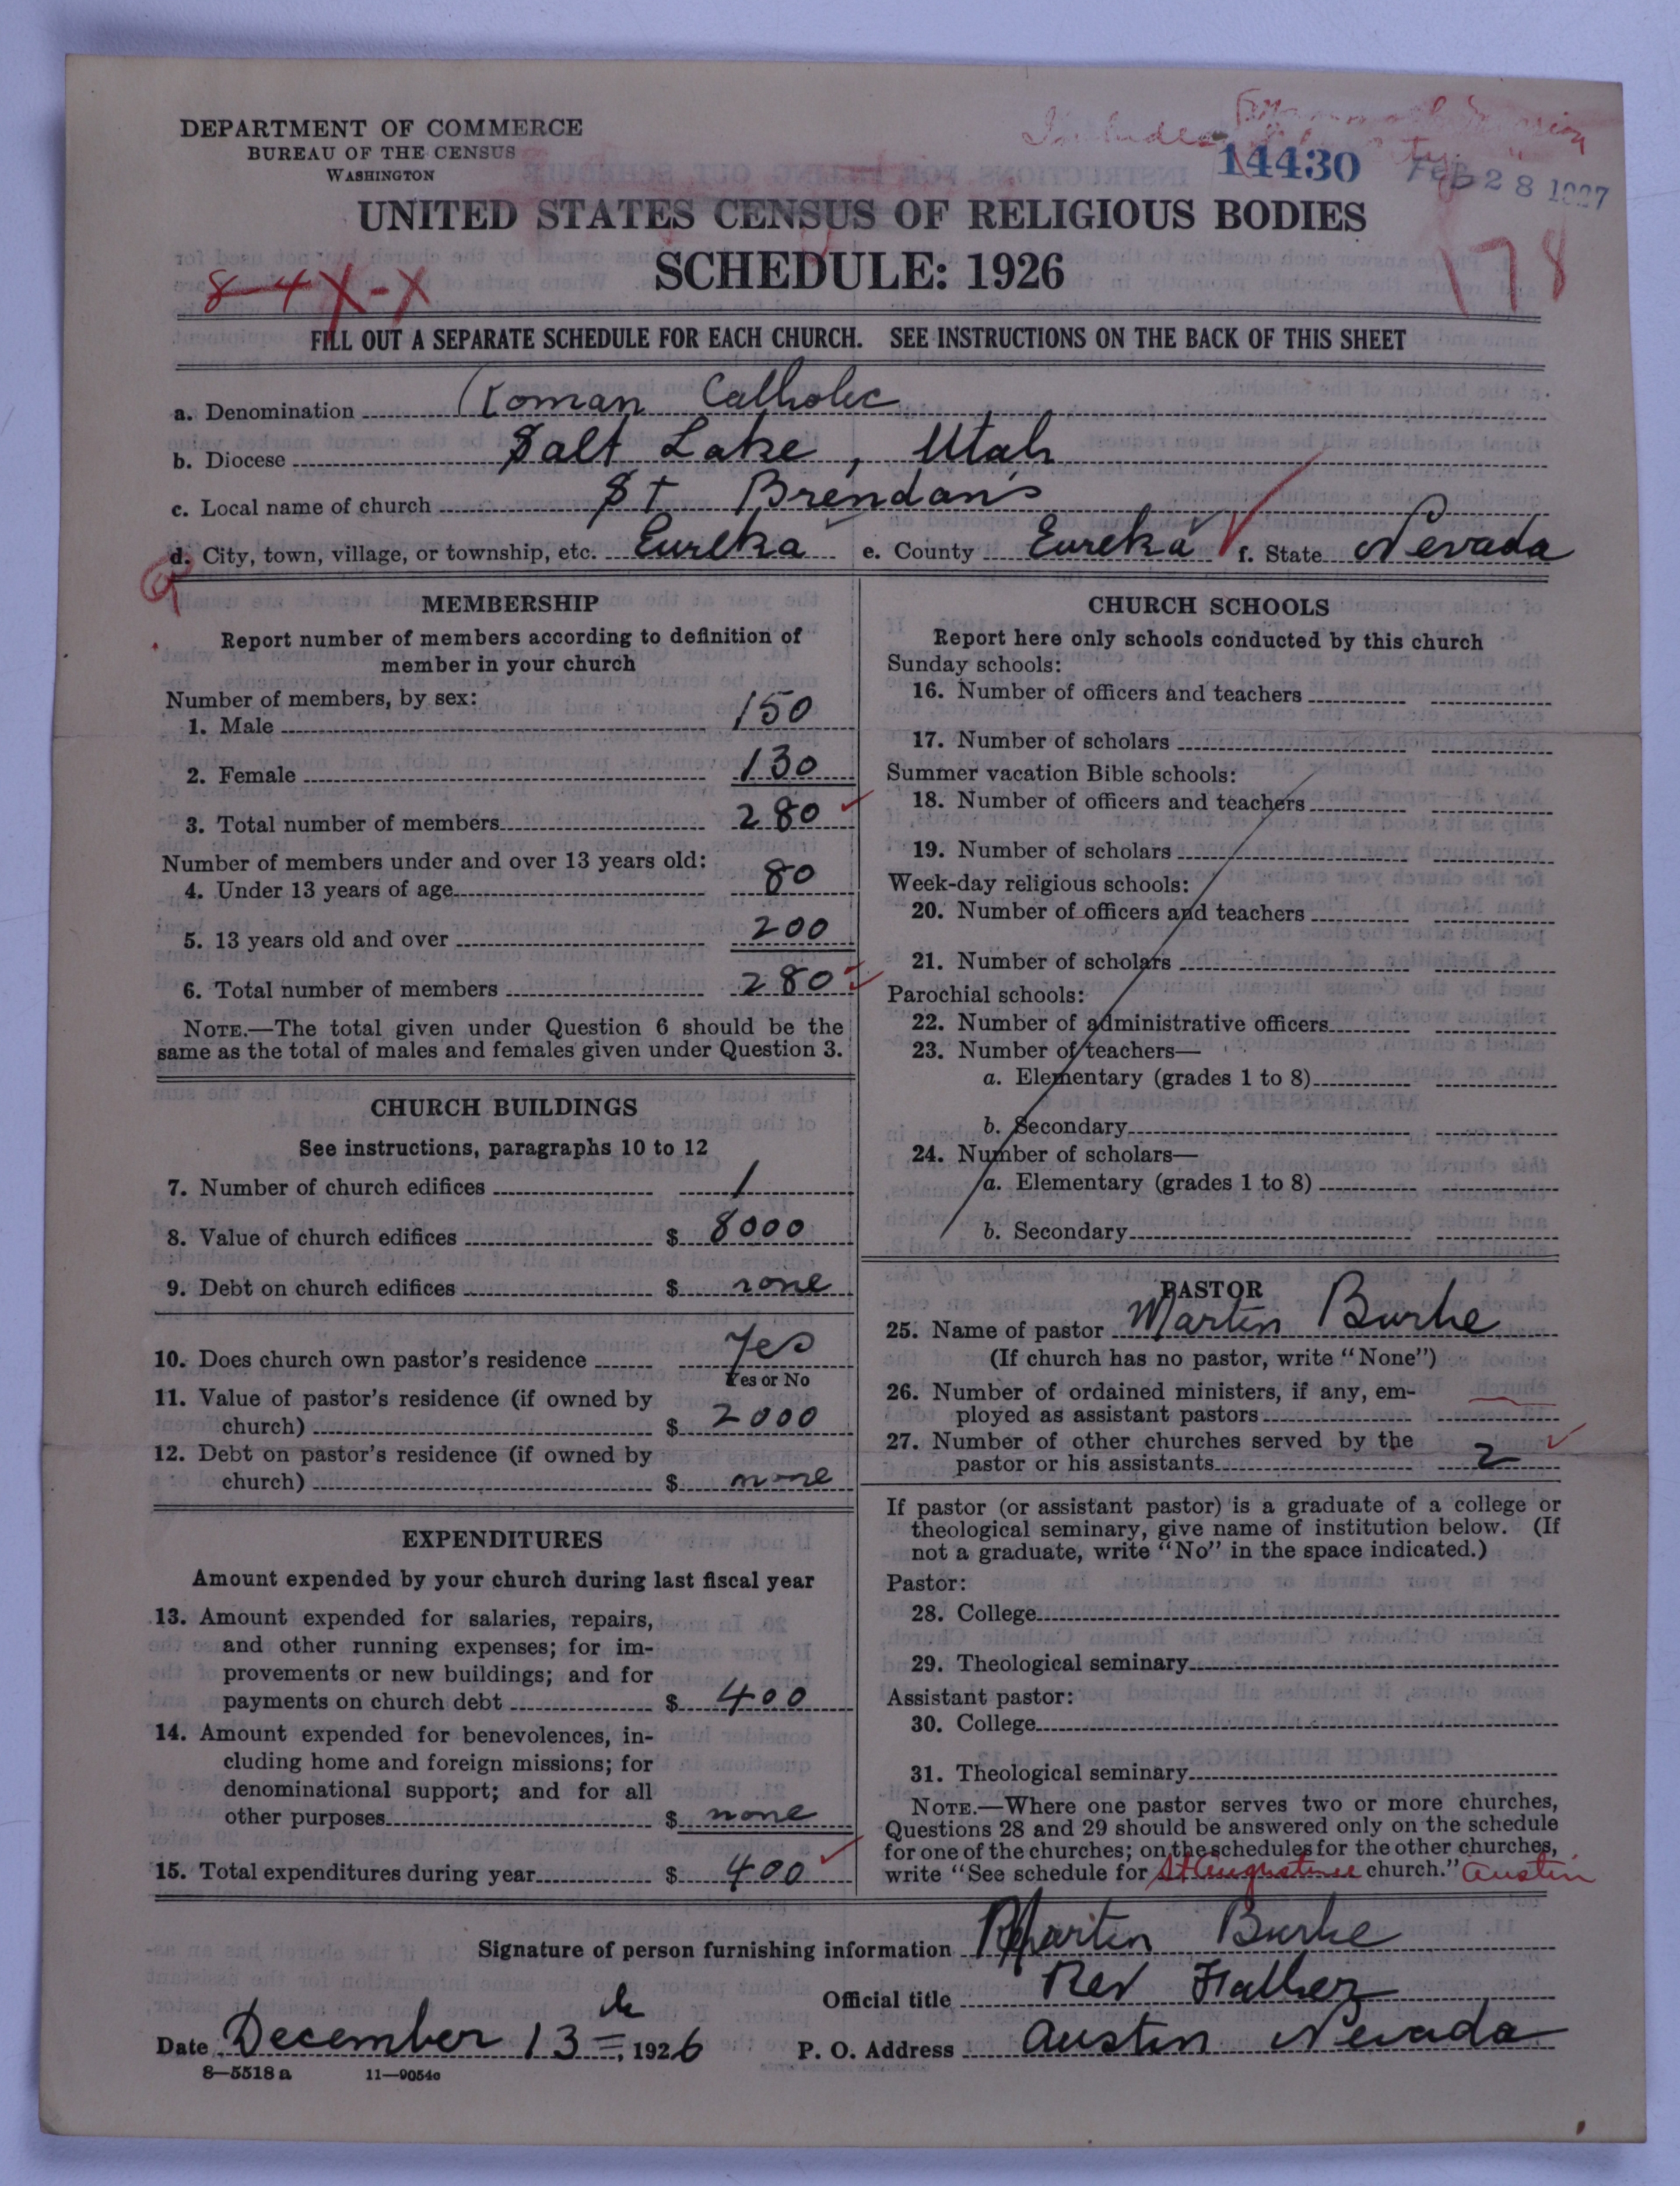 DEPARTMENT OF COMMERCE
BUREAU OF THE CENSUS
WASHINGTON
Includes
14430
FEB 28 1927
UNITED STATES CENSUS OF RELIGIOUS BODIES
SCHEDULE: 1926
8-4X-X
178
FILL OUT A SEPARATE SCHEDULE FOR EACH CHURCH. SEE INSTRUCTIONS ON THE BACK OF THIS SHEET
a. Denomination Roman Catholic
b. Diocese Salt Lake, Utah
c. Local name of church St Brendan's
d. City, town, village, or township, etc. Eureka e. County Eureka f. State Nevada
MEMBERSHIP
Report number of members according to definition of
member in your church
Number of members, by sex:
1. Male 150
2. Female 130
3. Total number of members 280
Number of members under and over 13 years old:
4. Under 13 years of age 80
5. 13 years old and over 200
6. Total number of members 280
NOTE.—The total given under Question 6 should be the
same as the total of males and females given under Question 3.
CHURCH BUILDINGS
See instructions, paragraphs 10 to 12
7. Number of church edifices 1
8. Value of church edifices $ 8000
9. Debt on church edifices $ none
10. Does church own pastor's residence Yes
Yes or No
11. Value of pastor's residence (if owned by
church) $ 2000
12. Debt on pastor's residence (if owned by
church) $ none
EXPENDITURES
Amount expended by your church during last fiscal year
13. Amount expended for salaries, repairs,
and other running expenses; for im-
provements or new buildings; and for
payments on church debt $ 400
14. Amount expended for benevolences, in-
cluding home and foreign missions; for
denominational support; and for all
other purposes $ none
15. Total expenditures during year $ 400
CHURCH SCHOOLS
Report here only schools conducted by this church
Sunday schools:
16. Number of officers and teachers
17. Number of scholars
Summer vacation Bible schools:
18. Number of officers and teachers
19. Number of scholars
Week-day religious schools:
20. Number of officers and teachers
21. Number of scholars
Parochial schools:
22. Number of administrative officers
23. Number of teachers—
a. Elementary (grades 1 to 8)
b. Secondary
24. Number of scholars—
a. Elementary (grades 1 to 8)
b. Secondary
PASTOR
25. Name of pastor Martin Burke
(If church has no pastor, write "None")
26. Number of ordained ministers, if any, em-
ployed as assistant pastors
27. Number of other churches served by the
pastor or his assistants 2
If pastor (or assistant pastor) is a graduate of a college or
theological seminary, give name of institution below. (If
not a graduate, write "No" in the space indicated.)
Pastor:
28. College
29. Theological seminary
Assistant pastor:
30. College
31. Theological seminary
NOTE.—Where one pastor serves two or more churches,
Questions 28 and 29 should be answered only on the schedule
for one of the churches; on the schedules for the other churches,
write "See schedule for St Augustine church." Austin
Signature of person furnishing information Martin Burke
Official title Rev Father
Date December 13th, 1926 P. O. Address Austin Nevada
8—5518 a 11—9054c